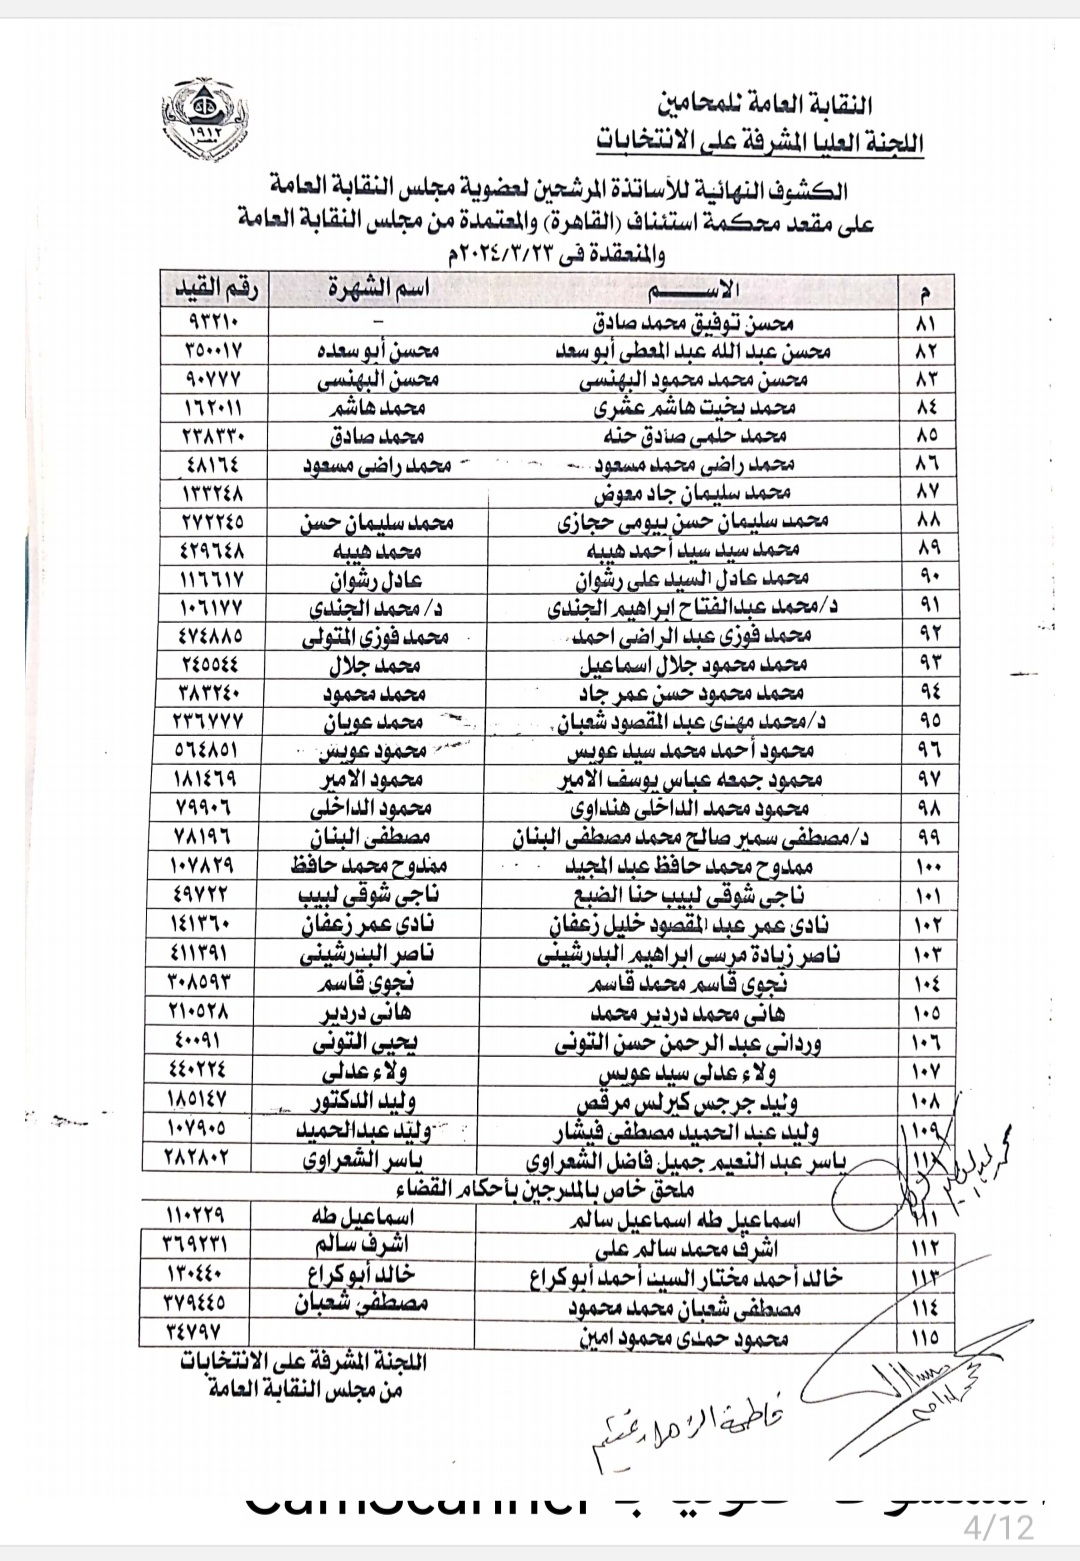 ١٩١٢
مصر
النقابة العامة للمحامين
اللجنة العليا المشرفة على الانتخابات
الكشوف النهائية للأساتذة المرشحين لعضوية مجلس النقابة العامة
على مقعد محكمة استئناف (القاهرة) والمعتمدة من مجلس النقابة العامة
والمنعقدة فى ٢٠٢٤/٣/٢٣م
م الاســـــم اسم الشهرة رقم القيد
٨١ محسن توفيق محمد صادق – ٩٣٢١٠
٨٢ محسن عبد الله عبد المعطى أبو سعد محسن أبو سعده ٣٥٠٠١٧
٨٣ محسن محمد محمود البهنسى محسن البهنسى ٩٠٧٧٧
٨٤ محمد بخيت هاشم عشرى محمد هاشم ١٦٢٠١١
٨٥ محمد حلمى صادق حنه محمد صادق ٢٣٨٣٣٠
٨٦ محمد راضى محمد مسعود محمد راضى مسعود ٤٨١٦٤
٨٧ محمد سليمان جاد معوض ١٣٣٢٤٨
٨٨ محمد سليمان حسن بيومى حجازى محمد سليمان حسن ٢٧٢٢٤٥
٨٩ محمد سيد سيد أحمد هيبه محمد هيبه ٤٢٩٦٤٨
٩٠ محمد عادل السيد على رشوان عادل رشوان ١١٦٦١٧
٩١ د/محمد عبدالفتاح ابراهيم الجندى د/ محمد الجندى ١٠٦١٧٧
٩٢ محمد فوزى عبد الراضى احمد محمد فوزى المتولى ٤٧٤٨٨٥
٩٣ محمد محمود جلال اسماعيل محمد جلال ٢٤٥٥٤٤
٩٤ محمد محمود حسن عمر جاد محمد محمود ٣٨٣٢٤٠
٩٥ د/محمد مهدى عبد المقصود شعبان محمد عويان ٢٣٦٧٧٧
٩٦ محمود أحمد محمد سيد عويس محمود عويس ٥٦٤٨٥١
٩٧ محمود جمعه عباس يوسف الامير محمود الامير ١٨١٤٦٩
٩٨ محمود محمد الداخلى هنداوى محمود الداخلى ٧٩٩٠٦
٩٩ د/مصطفى سمير صالح محمد مصطفى البنان مصطفى البنان ٧٨١٩٦
١٠٠ ممدوح محمد حافظ عبد المجيد ممدوح محمد حافظ ١٠٧٨٢٩
١٠١ ناجى شوقى لبيب حنا الضبع ناجى شوقى لبيب ٤٩٧٢٢
١٠٢ نادى عمر عبد المقصود خليل زعفان نادى عمر زعفان ١٤١٣٦٠
١٠٣ ناصر زيادة مرسى ابراهيم البدرشينى ناصر البدرشينى ٤١١٣٩١
١٠٤ نجوى قاسم محمد قاسم نجوى قاسم ٣٠٨٥٩٣
١٠٥ هانى محمد دردير محمد هانى دردير ٢١٠٥٢٨
١٠٦ وردانى عبد الرحمن حسن التونى يحيى التونى ٤٠٠٩١
١٠٧ ولاء عدلى سيد عويس ولاء عدلى ٤٤٠٢٢٤
١٠٨ وليد جرجس كيرلس مرقص وليد الدكتور ١٨٥١٤٧
١٠٩ وليد عبد الحميد مصطفى فيشار وليد عبدالحميد ١٠٧٩٠٥
ياسر عبد النعيم جميل فاضل الشعراوى ياسر الشعراوى ٢٨٢٨٠٢
ملحق خاص بالمدرجين بأحكام القضاء
١١١ اسماعيل طه اسماعيل سالم اسماعيل طه ١١٠٢٢٩
١١٢ اشرف محمد سالم على اشرف سالم ٣٦٩٢٣١
١١٣ خالد أحمد مختار السيد أحمد أبو كراع خالد أبو كراع ١٣٠٤٤٠
١١٤ مصطفى شعبان محمد محمود مصطفى شعبان ٣٧٩٤٤٥
١١٥ محمود حمدى محمود امين ٣٤٧٩٧
اللجنة المشرفة على الانتخابات
من مجلس النقابة العامة
فاطمة الزهراء
CamScanner
4/12